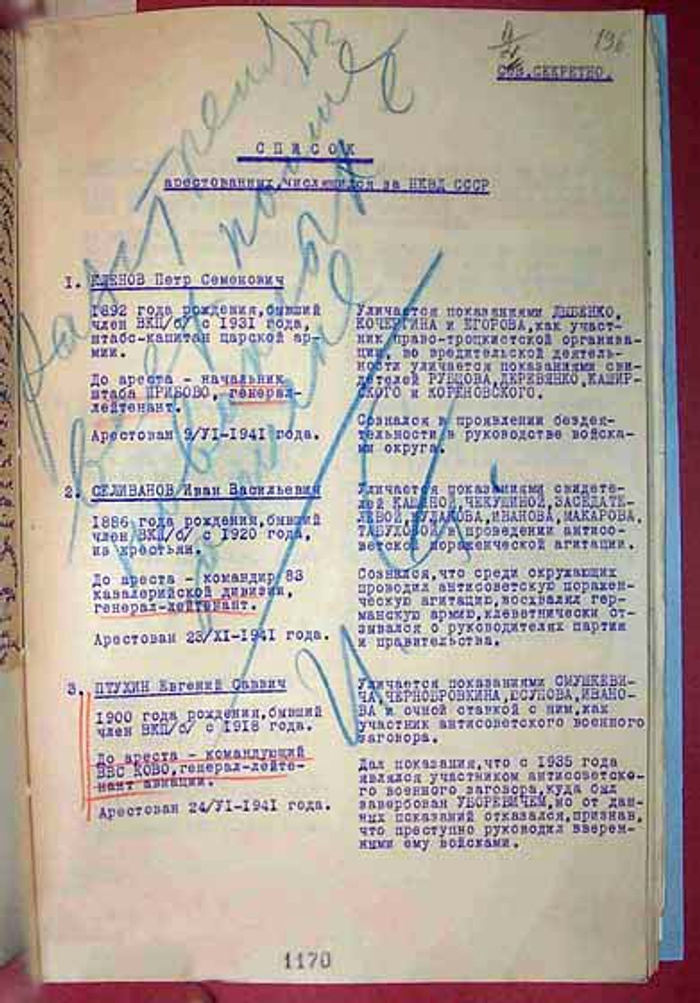 196
СОВ.СЕКРЕТНО.
СПИСОК
арестованных,числящихся за НКВД СССР
1. КЛЕНОВ Петр Семенович
1892 года рождения,бывший
член ВКП/б/ с 1931 года,
штабс-капитан царской ар-
мии.
До ареста - начальник
штаба ПРИБОВО, генерал-
лейтенант.
Арестован 9/УI-1941 года.
Уличается показаниями ДЫБЕНКО,
КОЧЕРГИНА и ЕГОРОВА,как участ-
ник право-троцкистской организа-
ции, во вредительской деятель-
ности уличается показаниями сви-
детелей РУБЦОВА,ДЕРЕВЯНКО,КАШИР-
СКОГО и КОРЕНОВСКОГО.
Сознался в проявлении бездея-
тельности в руководстве войска-
ми округа.
2. СЕЛИВАНОВ Иван Васильевич
1886 года рождения,бывший
член ВКП/б/ с 1920 года,
из крестьян.
До ареста - командир 83
кавалерийской дивизии,
генерал-лейтенант.
Арестован 23/XI-1941 года.
Уличается показаниями свидете-
лей ЧЕКУШИНОЙ,ЗАСЕДАТЕ-
ЛЕВОЙ,БУЛАКОВА,ИВАНОВА,МАКАРОВА,
в проведении антисо-
ветской пораженческой агитации.
Сознался,что среди окружающих
проводил антисоветскую поражен-
ческую агитацию,восхвалял гер-
манскую армию,клеветнически от-
зывался о руководителях партии
и правительства.
3. ПТУХИН Евгений Саввич
1900 года рождения,бывший
член ВКП/б/ с 1918 года.
До ареста - командующий
ВВС КОВО,генерал-лейте-
нант авиации.
Арестован 24/УI-1941 года.
Уличается показаниями СМУШКЕВИ-
ЧА,ЧЕРНОБРОВКИНА,ЮСУПОВА,ИВАНО-
ВА и очной ставкой с ним,как
участник антисоветского военного
заговора.
Дал показания,что с 1935 года
являлся участником антисоветско-
го военного заговора,куда был
завербован УБОРЕВИЧЕМ,но от дан-
ных показаний отказался,признав,
что преступно руководил вверен-
ными ему войсками.
1170